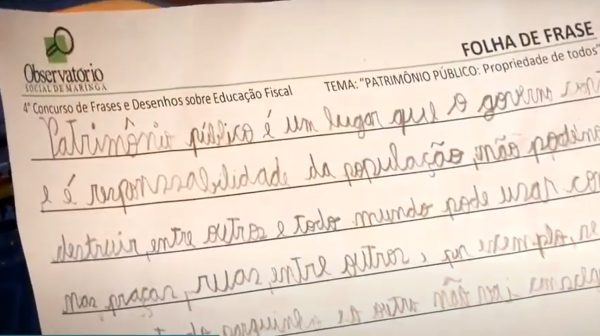 Observatório
SOCIAL DE MARINGÁ
FOLHA DE FRASE
4° Concurso de Frases e Desenhos sobre Educação Fiscal
TEMA: "PATRIMÔNIO PÚBLICO: Propriedade de todos"
Patrimônio público é um lugar que o governo
e é responssabilidade da população, não
destruir, entre outros e todo mundo pode usar
nas praças, ruas, entre outros, por exemplo,
e a outra não vai